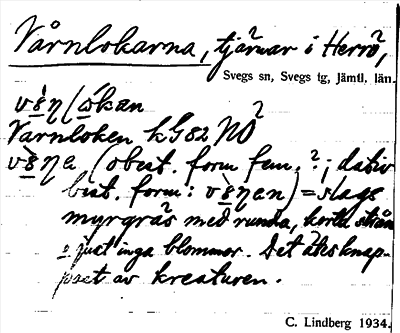 Vårnlokarna, tjärnar i Herrö,
Svegs sn, Svegs tg, Jämtl. län.
Vårnloken kG82 NÖ
(obest. form fem.?; dativ
best. form: ) = slags
myrgräs med runda, korta strån
o just inga blommor. Det äts knap-
past av kreaturen.
C. Lindberg 1934.